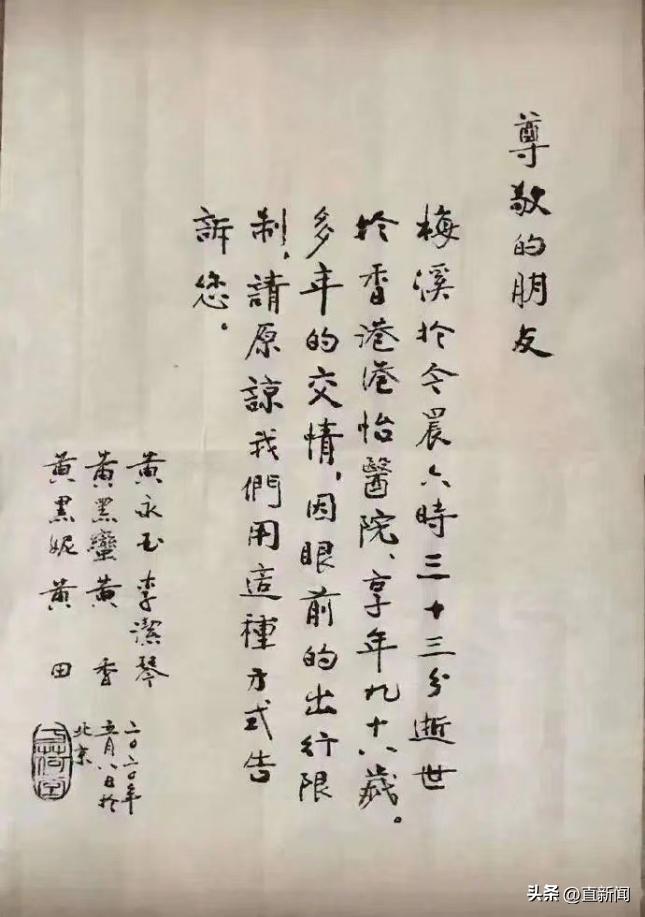 尊敬的朋友
梅溪於今晨六時三十三分逝世
於香港港怡醫院、享年九十八歲。
多年的交情，因眼前的出行限
制，請原諒我們用這種方式告
訴您。
黃永玉 李潔琴
黃黑蠻 黃香
黃黑妮 黃田
二〇二〇年
五月八日於
北京
头条 @直新闻